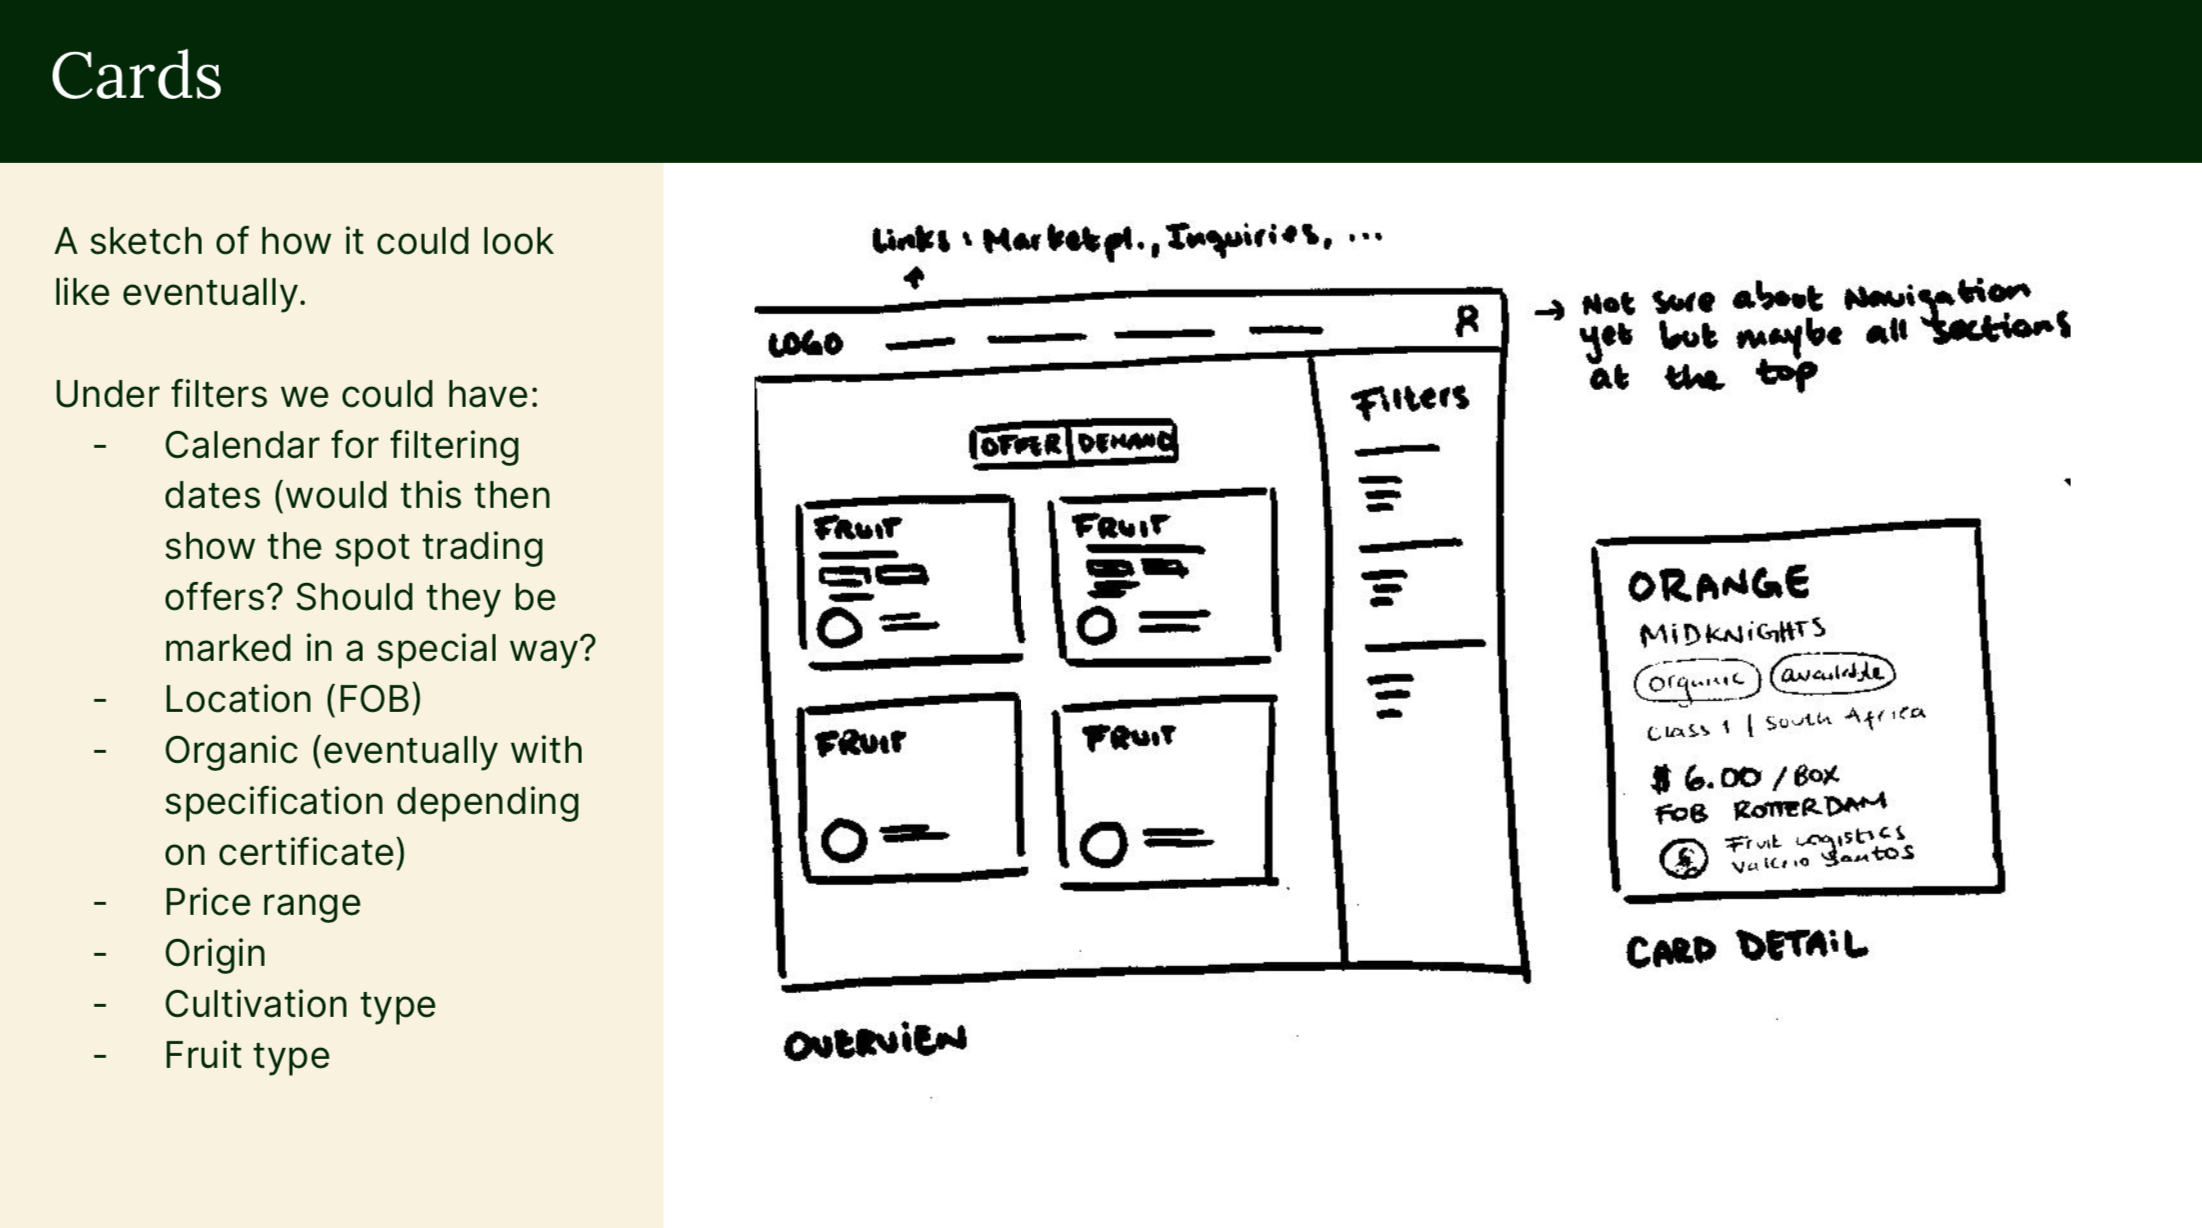 Cards
A sketch of how it could look
like eventually.
Under filters we could have:
- Calendar for filtering
dates (would this then
show the spot trading
offers? Should they be
marked in a special way?
- Location (FOB)
- Organic (eventually with
specification depending
on certificate)
- Price range
- Origin
- Cultivation type
- Fruit type
Links: Marketpl., Inquiries, ...
→ Not sure about Navigation
yet but maybe all sections
at the top
LOGO
Filters
OFFER DEMAND
FRUIT
FRUIT
FRUIT
FRUIT
OVERVIEW
ORANGE
MiDKNiGHTS
organic available
Class 1 | South Africa
$ 6.00 / BOX
FOB ROTTERDAM
Fruit Logistics
Valerio Santos
CARD DETAiL